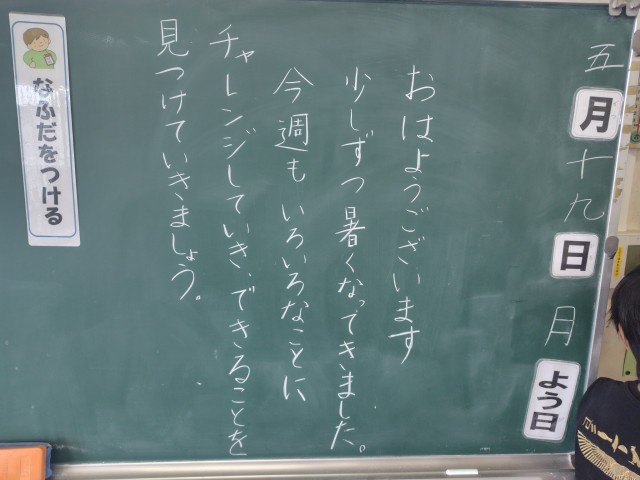 五月十九日月よう日
おはようございます
少しずつ暑くなってきました。
今週も いろいろなことに
チャレンジしていき、できることを
見つけていきましょう。
なふだをつける